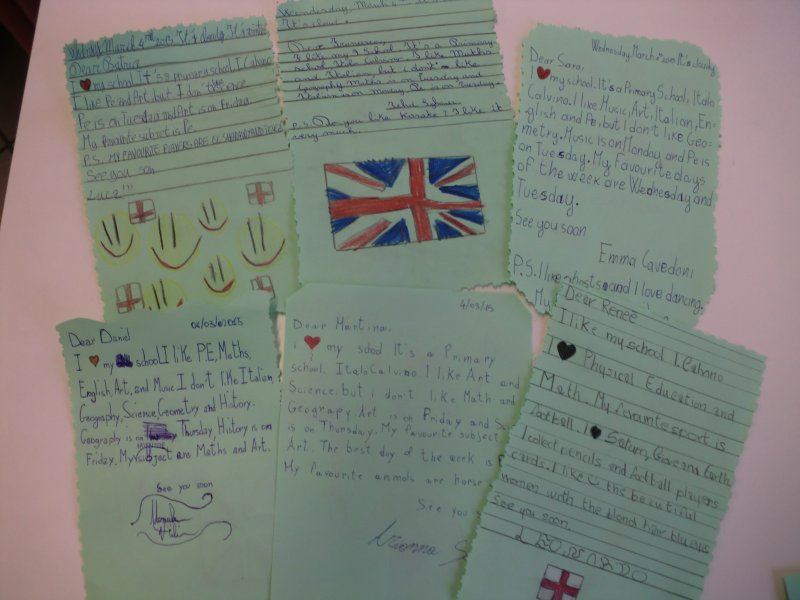 March 4th 2015 It's cloudy. It's winter
Dear Beatrice
I my school. It's a primary school. I. Calvino
I like Pe and Art but I don't like science
Pe is on Tuesday and Art is on Friday.
My favourite subject is Pe
P.S. MY FAVOURITE PLAYERS ARE EL SHAARAWY AND
See you soon
Luca!!!
March
It's cloudy.
Dear
I like my School. It's a Primary
School Italo Calvino. I like Maths
and Italian but i don't like
Geography. Maths is on Tuesday and
Italian is on Monday. Pe is on Tuesday.
P.S. Do you like Karate? I like it
very much.
Wednesday, March It's cloudy
Dear Sara.
I my school. It's a Primary School, Italo
Calvino. I like Music, Art, Italian, En-
glish and Pe, but I don't like Geo-
metry. Music is on Monday and Pe is
on Tuesday. My Favourite days
of the week are Wednesday and
Tuesday.
See you soon
Emma Cavedoni
P.S. I like ghosts and I love dancing.
My
Dear Daniel
I my school. I like PE, Maths,
English, Art, and Music I don't like Italian,
Geography, Science, Geometry and History.
Geography is on Thursday History is on
Friday. My subject are Maths and Art.
See you soon
4/03/15
Dear Martina,
I my school It's a Primary
school. Italo Calvino. I like Art and
Science. but i don't like Math and
Geograpy. Art is on Friday and
is on Thursday. My favourite subject
Art. The best day of the week is
My favourite animals are horse
See you s
Arianna
Dear Renee
I like my school I. Calvino
I Physical Education and
Math. My favourite sport is
football. I
I collect pencils and football players
cards. I like the beautiful
women with the blond hair blu eyes
See you soon
LEONARDO